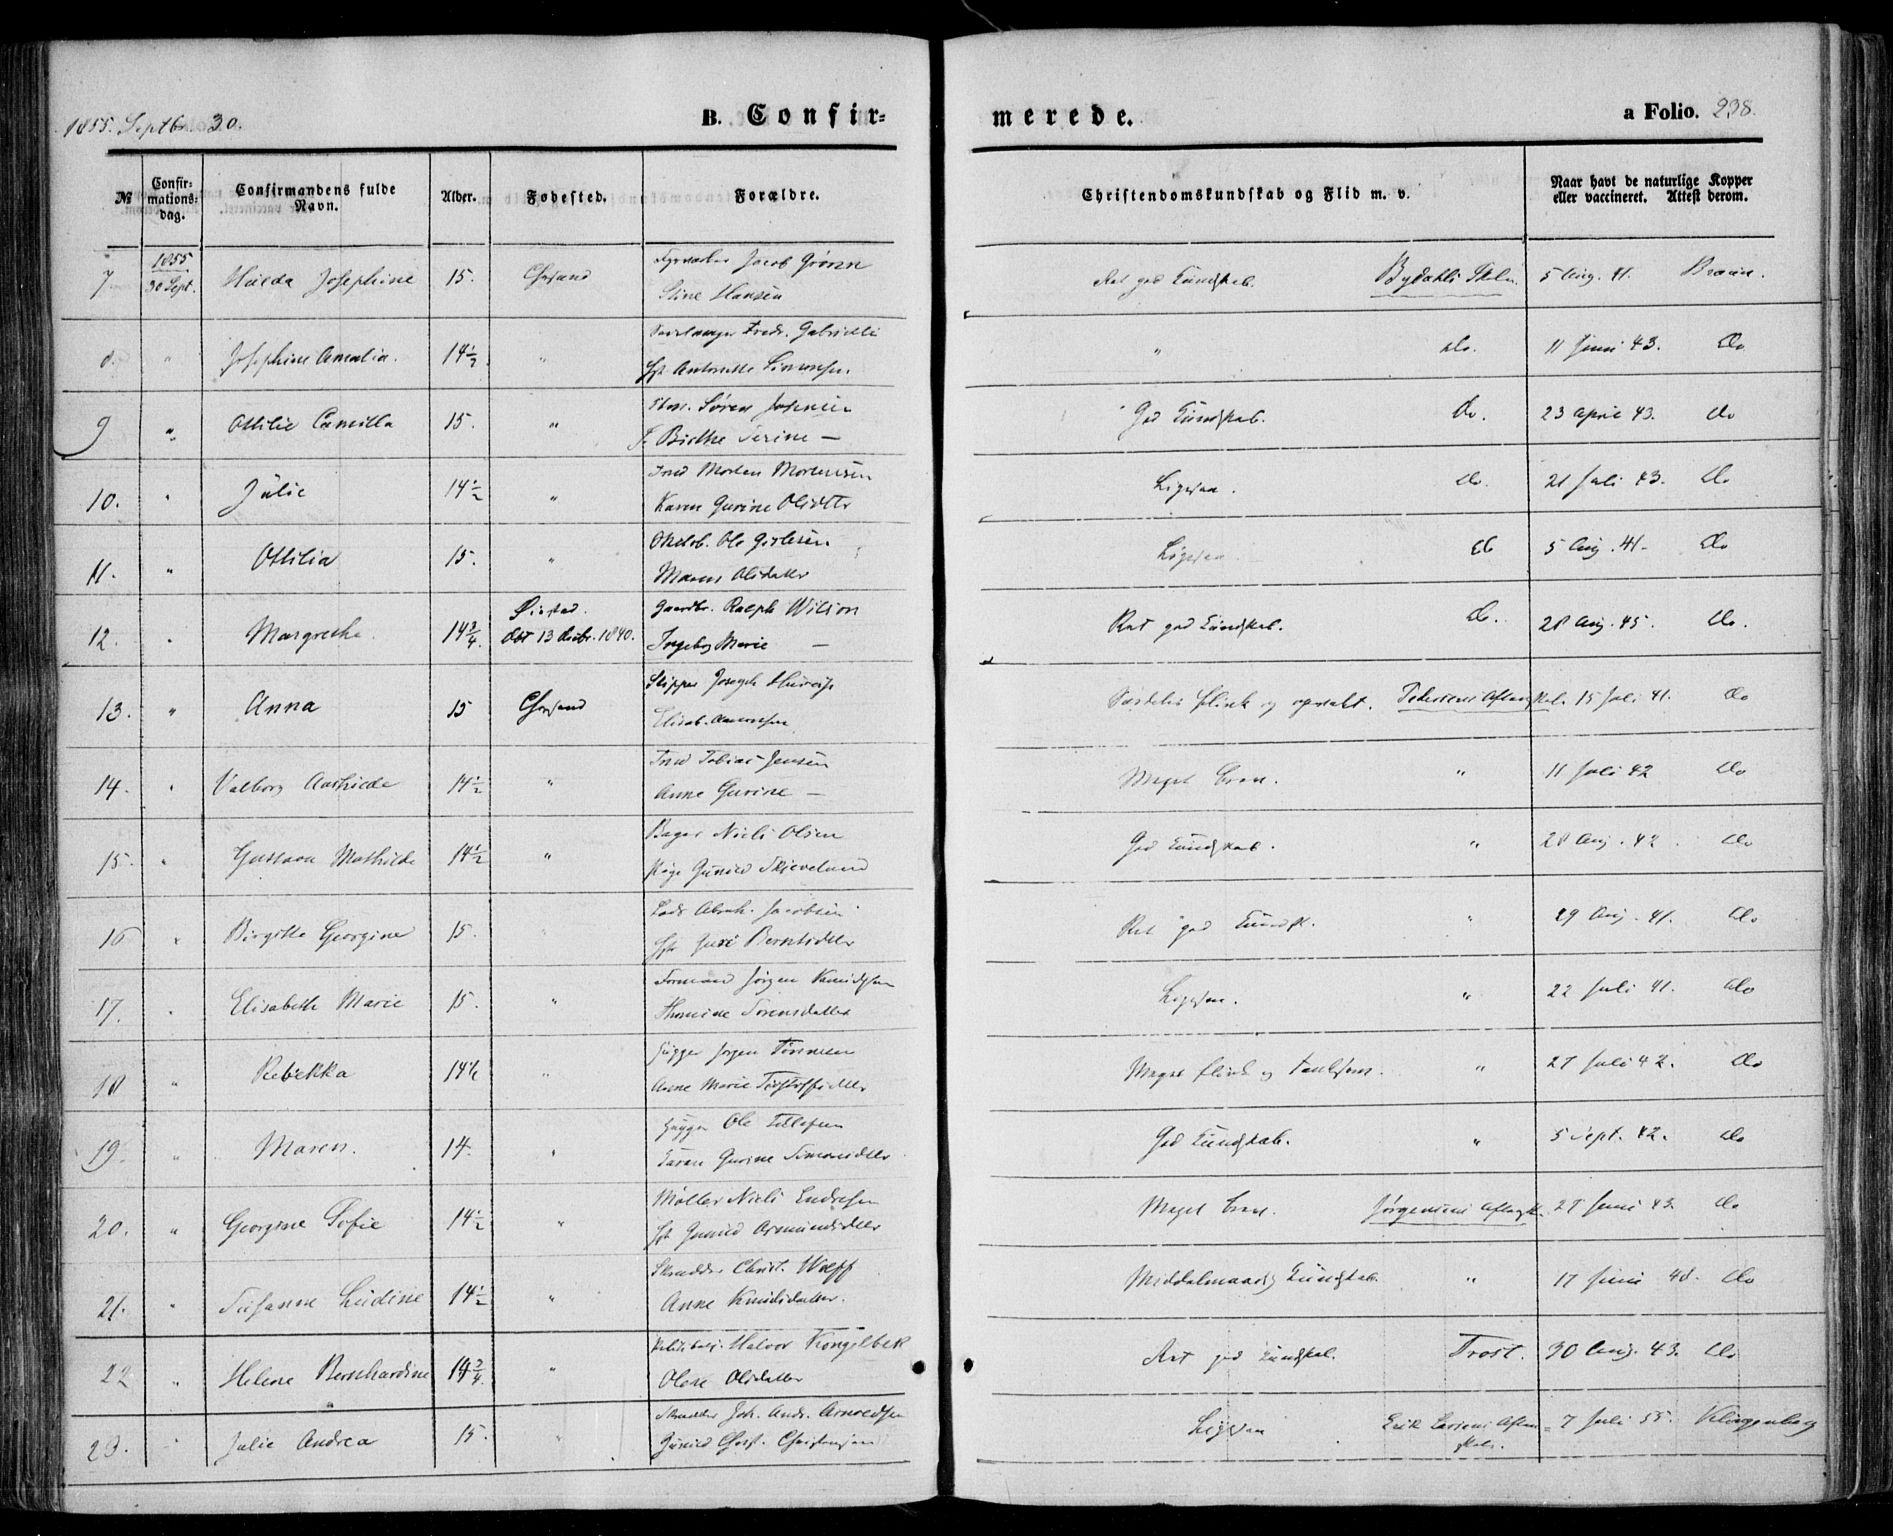 1855. Septbr 30.
B. Confir=
merede.
a Folio. 238.
№
Confir-
mations-
dag.
Confirmandens fulde
Navn.
Alder.
Fødested.
Forældre.
Christendomskundskab og Flid m. v.
Naar havt de naturlige Kopper
eller vaccineret. Attest derom.
7 1855 30 Sept. Hulda Josephine 15. Chrsand Jacob
Stine Hansen
Ret god Kundskab. Bydahls Skole. 5 Aug. 41. Bruun.
8. " Josephine Amalia. 14½ " Fredr. Gabrielli
Antonette Simonsen.
" do. 11 Juni 43. do
9 " Ottilie Camilla 15. " Søren Johnsen
Birthe Serine —
God Kundskab. do. 23 April 43. do
10. " Julie 14½ " Morten Mortensen
Karen Gurine Olsdtr
Ligesaa. do. 21 Juli 43. do
11. " Ottilia 15. " Ole
Maren Olsdatter
Ligesaa do 5 Aug. 41. do
12. " Margrethe 14¾. Øiestad. Gaardbr. Ralph Wilson
dbt 13 Decbr. 1840. Ingeborg Marie —
Ret god Kundskab. do. 28 Aug. 45. do.
13. " Anna 15 Chrsand Skipper Joseph
Elisab. Aanonsen
Særdeles flink og opvakt. Pedersens Aftenskole. 15 Juli 41. do
14. " Valborg Aashilde 14½ " Tobias Jensen
Anne Gurine —
Meget brav. " 11 Juli 42 do
15. " Gustava Mathilde 14½ " Bager Niels Olsen
Pige Gunild Skjeveland
God Kundskab. " 28 Aug. 42. do
16 " Birgitte Georgine 15. " Abrah. Jacobsen
Guri Berntsdtr
Ret god Kundsk. " 29 Aug. 41. do
17. " Elisabeth Marie 15. " Formand Jørgen Knudsen
Thomine Sørensdatter
Ligesaa. " 22 Juli 41. do
18 " Rebekka 14½ " Jørgen Tønnesen
Anne Marie
Meget flink og " 27 Juli 42. do
19. " Maren. 14. " Ole Tellefsen
Karen Gurine Simonsdtr
God Kundskab. " 5 Sept. 42. do
20. " Georgine Sofie 14½ " Møller Niels Endresen
Gunild Asmundsdtr
Meget brav. Jørgensens Aftensk. 27 Juni 43. do
21. " Susanne Ludine 14½ " Skrædder Christ. Wolff
Anne Knudsdatter.
Middelmaadig Kundskab. " 17 Juni 48. do
22 " Helene Bernhardine 14¾. " Halvor Kongelbek
Olene Olsdatter
Ret god Kundskab. Trost. 30 Aug. 43. do
23. " Julie Andrea 15. " Skrædder Joh. Andr. Arnoldsen
Gunild Christensen
Ligesaa Erik Larsens Aften
skole. 7 Juli 55. Klinggenberg